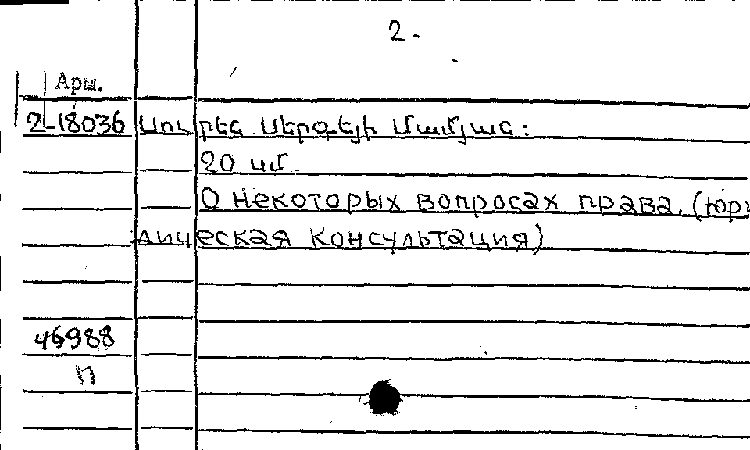 2.
Арш.
2-18036 Սուրեն Սերգեյի Մամյան:
20 սմ.
О некоторых вопросах права. (юри
дическая консультация)
46988
п